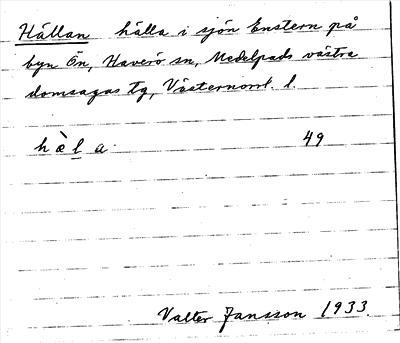 Hällan hälla i sjön Enstern på
byn Ön, Haverö sn, Medelpads västra
domsagas tg, Västernorrl. l.
hæ̀la. 49
Valter Jansson 1933.